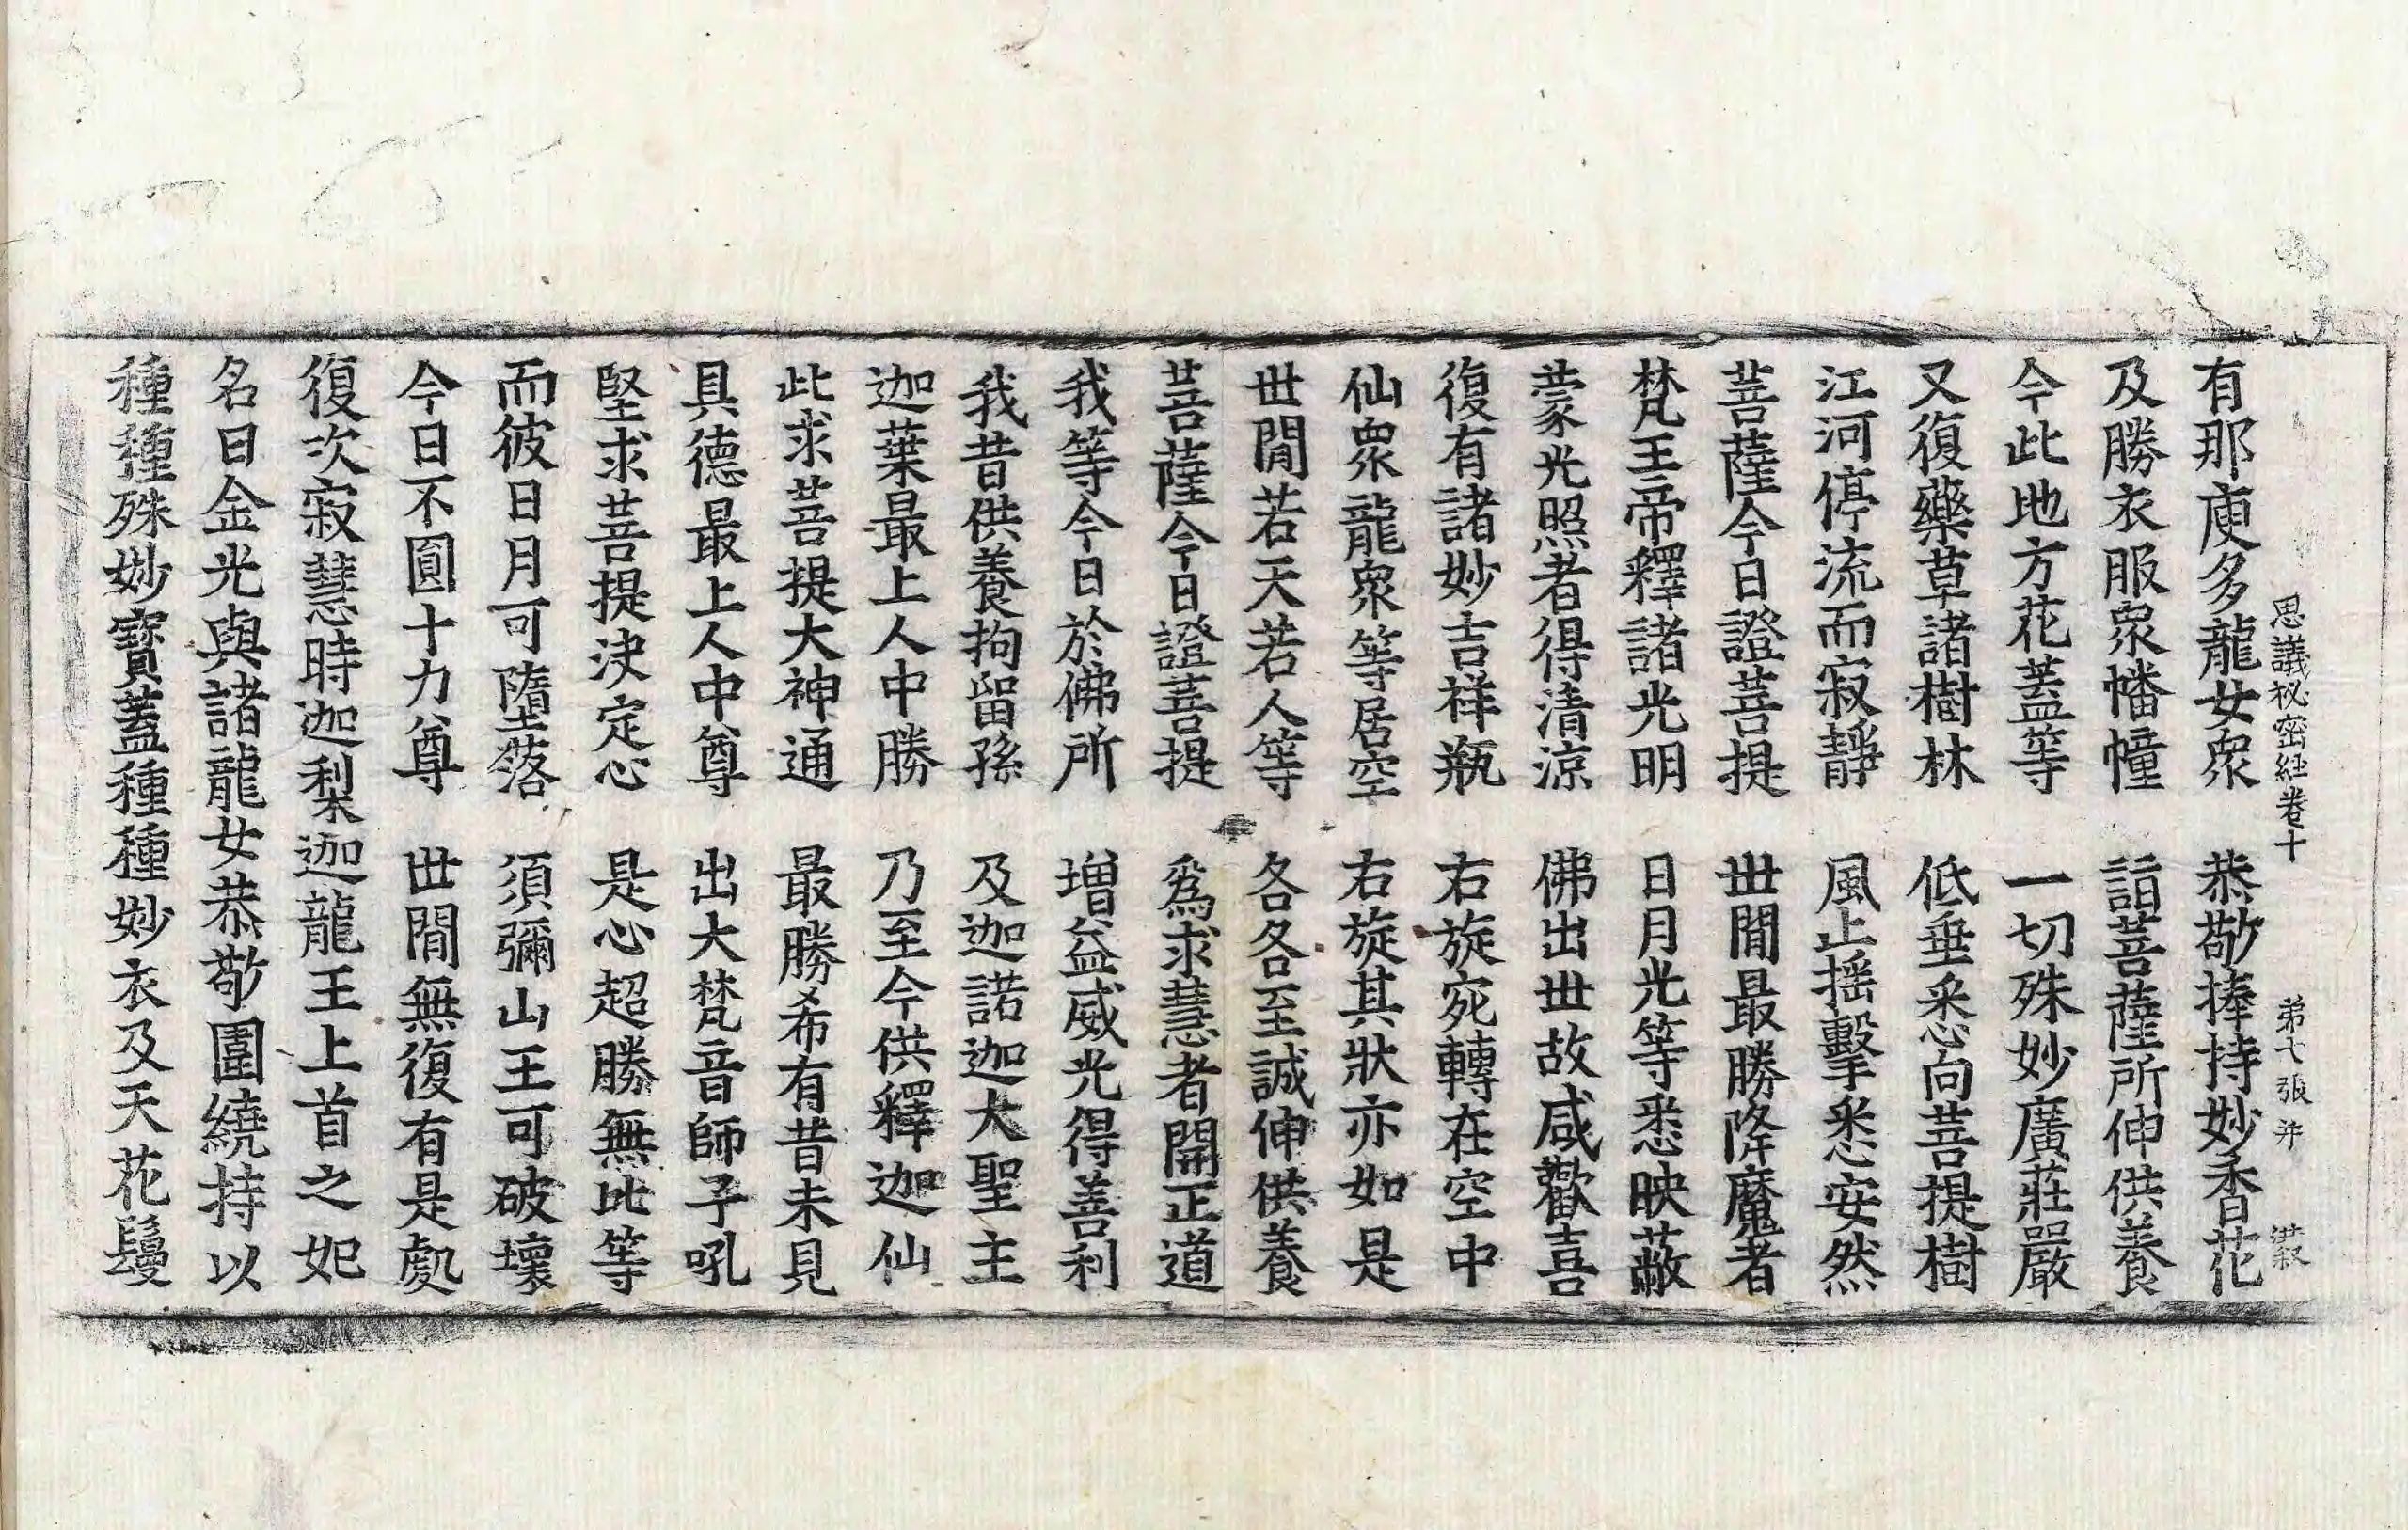 思議秘密經卷十　第七張　幷　洪叙
有那庾多龍女衆　恭敬捧持妙香花
及勝衣服衆幡幢　詣菩薩所伸供養
今此地方花蓋等　一切殊妙廣莊嚴
又復藥草諸樹林　低垂悉向菩提樹
江河停流而寂靜　風止搖擊悉安然
菩薩今日證菩提　世閒最勝降魔者
梵王帝釋諸光明　日月光等悉映蔽
蒙光照者得清涼　佛出世故咸歡喜
復有諸妙吉祥瓶　右旋宛轉在空中
仙衆龍衆等居空　右旋其狀亦如是
世閒若天若人等　各各至誠伸供養
菩薩今日證菩提　爲求慧者開正道
我等今日於佛所　增益威光得善利
我昔供養拘留孫　及迦諾迦大聖主
迦葉最上人中勝　乃至今供釋迦仙
此求菩提大神通　最勝希有昔未見
具德最上人中尊　出大梵音師子吼
堅求菩提決定心　是心超勝無比等
而彼日月可墮落　須彌山王可破壞
今日不圓十力尊　世閒無復有是處
復次寂慧時迦梨迦龍王上首之妃
名曰金光與諸龍女恭敬圍繞持以
種種殊妙寶蓋種種妙衣及天花鬘